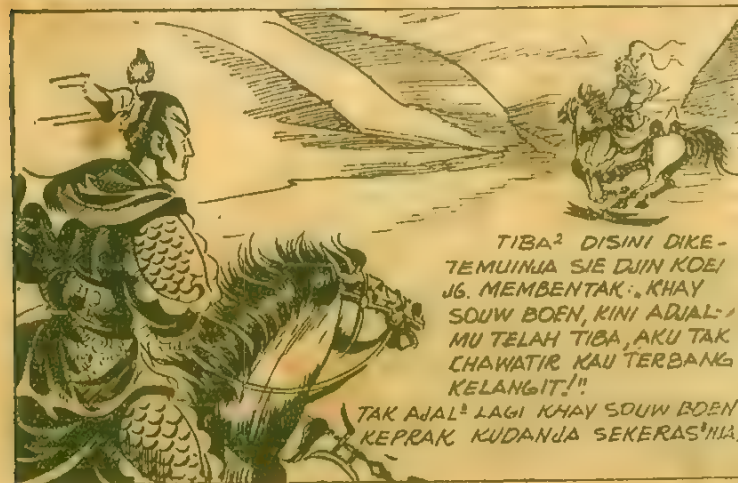 TIBA² DISINI DIKE-
TEMUINJA SIE DJIN KOEI
JG. MEMBENTAK: „KHAY
SOUW BOEN, KINI ADJAL-
MU TELAH TIBA, AKU TAK
CHAWATIR KAU TERBANG
KELANGIT!"
TAK AJAL² LAGI KHAY SOUW BOEN
KEPRAK KUDANJA SEKERAS²NJA.